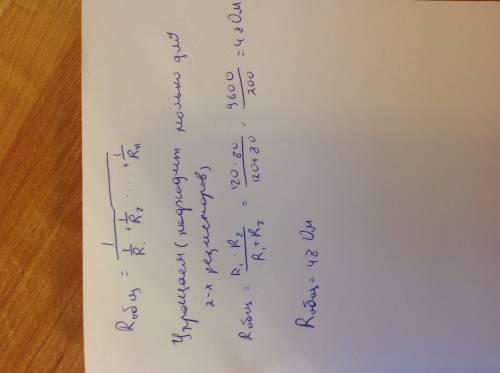 Rобщ = 1 / (1/R₁ + 1/R₂ ... + 1/Rn)
Упрощаем (подходит только для
2-х резисторов)
Rобщ = R₁ · R₂ / (R₁ + R₂) = 120 · 80 / (120 + 80) = 9600 / 200 = 48 Ом
Rобщ = 48 Ом